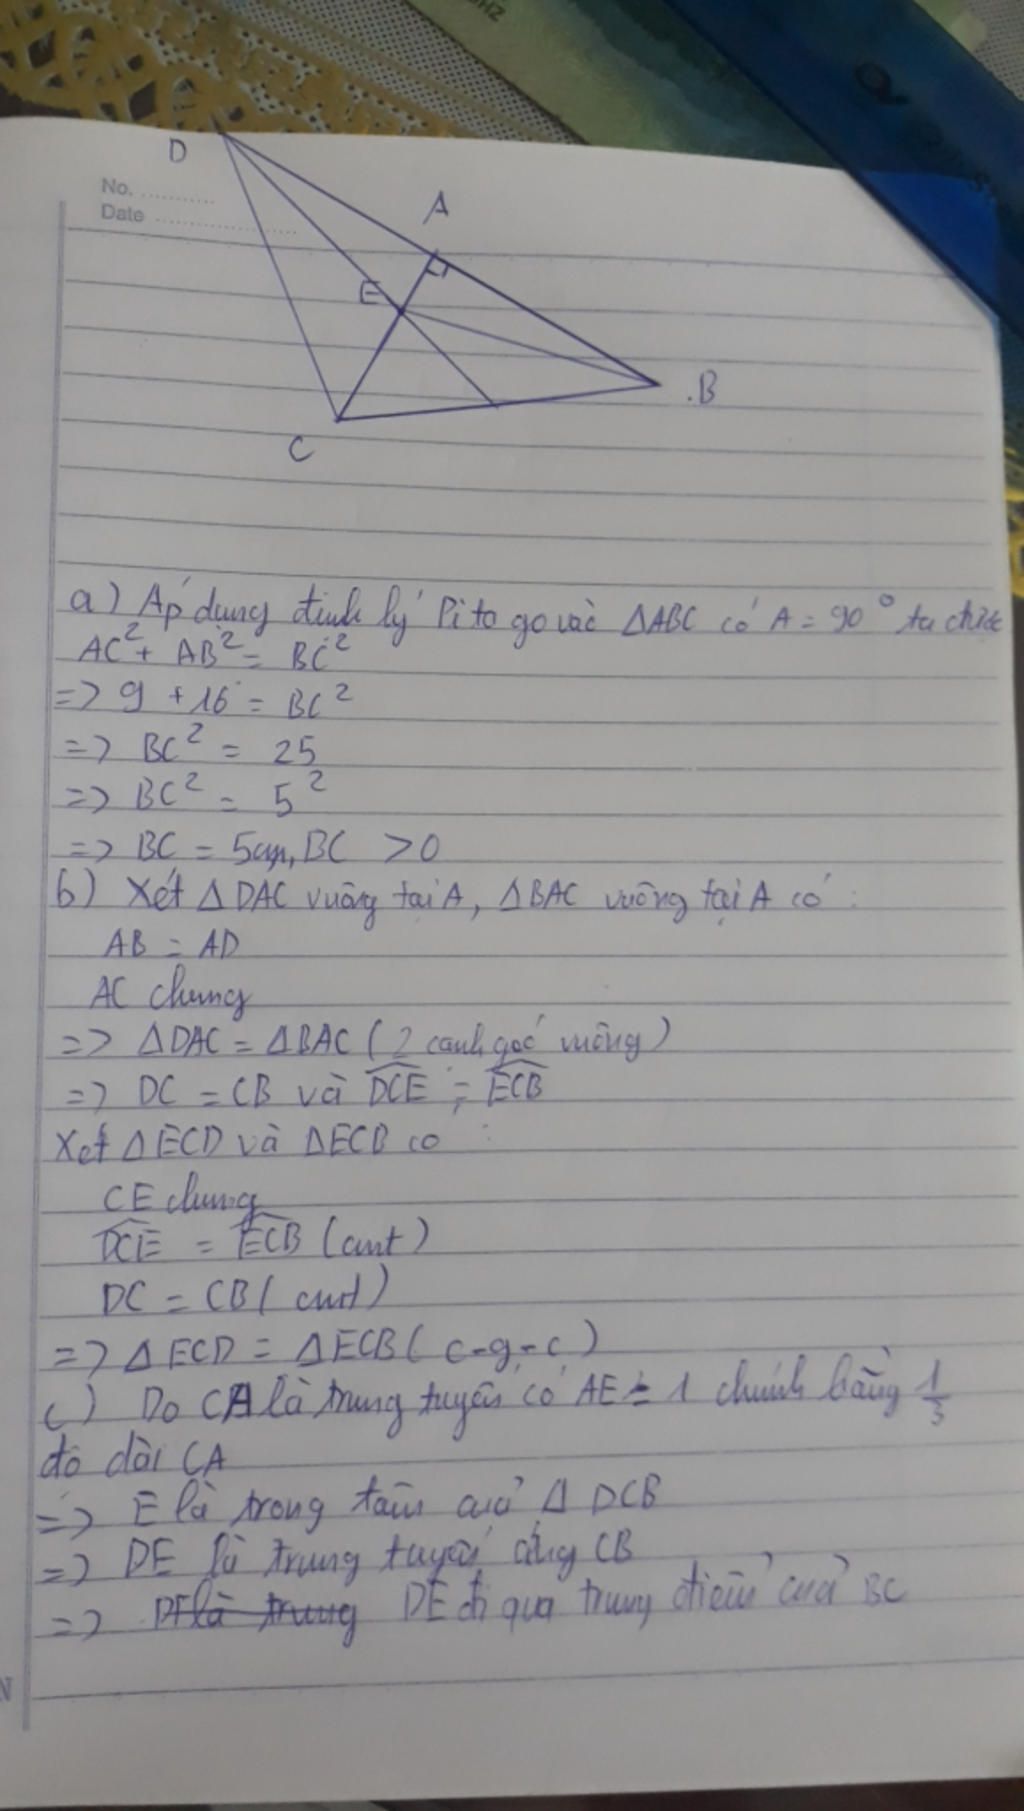 HZ
D
No. ............
Date ....................
A
E
B
C
a) Áp dụng định lý Pitago vào ΔABC có A = 90° ta được
AC² + AB² = BC²
=> 9 + 16 = BC²
=> BC² = 25
=> BC² = 5²
=> BC = 5cm, BC > 0
b) Xét ΔDAC vuông tại A, ΔBAC vuông tại A có :
AB = AD
AC chung
=> ΔDAC = ΔBAC ( 2 cạnh góc vuông )
=> DC = CB và DCE = ECB
Xét ΔECD và ΔECB có :
CE chung
DCE = ECB ( cmt )
DC = CB ( cmt )
=> ΔECD = ΔECB ( c-g-c )
c) Do CA là trung tuyến có AE = 1 chính bằng 1/3
độ dài CA
=> E là trong tâm của Δ DCB
=> DE là trung tuyến ứng CB
=> DE đi qua trung điểm của BC
N